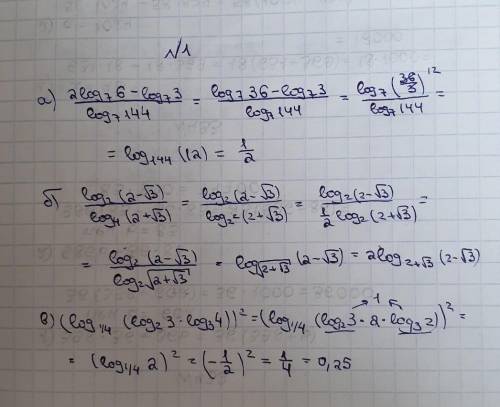 №1
а) (2log₇6 - log₇3)/(log₇144) = (log₇36 - log₇3)/(log₇144) = (log₇(36/3)¹²)/(log₇144) =
= log₁₄₄(12) = 1/2
б) (log₂(2-√3))/(log₄(2+√3)) = (log₂(2-√3))/(log₂²(2+√3)) = (log₂(2-√3))/(1/2 log₂(2+√3)) =
= (log₂(2-√3))/(log₂√(2+√3)) = log_√(2+√3) (2-√3) = 2log_2+√3 (2-√3)
в) (log_1/4 (log₂3·log₃4))² = (log_1/4 (log₂3·2·log₃2))² = 1
= (log_1/4 2)² = (-1/2)² = 1/4 = 0,25